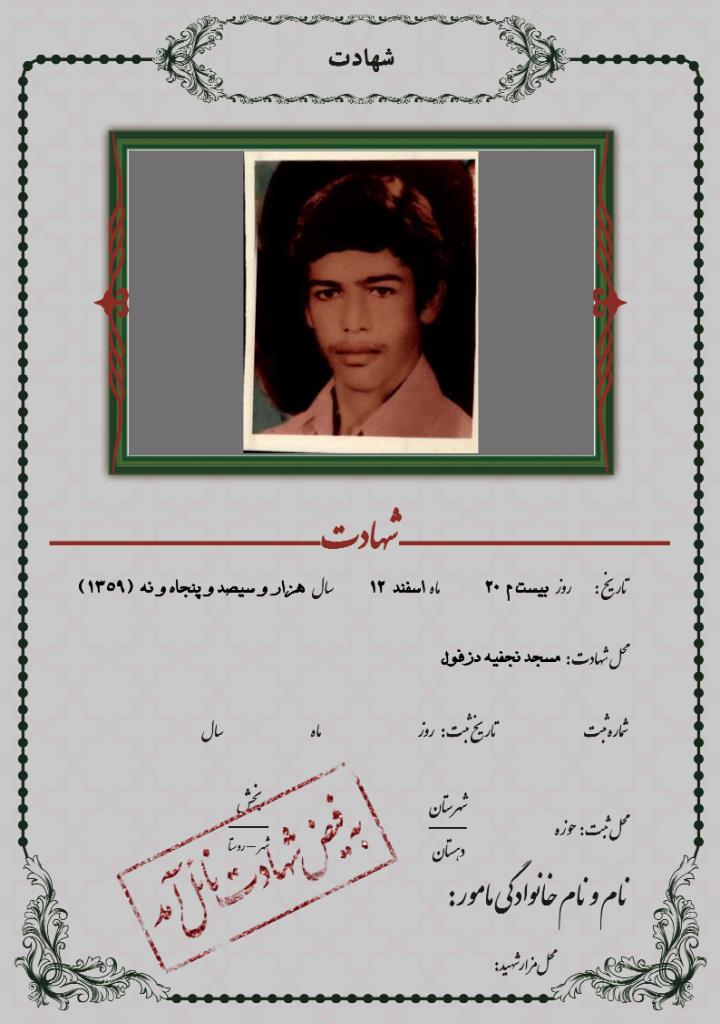 شهادت
شهادت
تاریخ: روز بیستم ۲۰ ماه اسفند ۱۲ سال هزار و سیصد و پنجاه و نه (۱۳۵۹)
محل شهادت: مسجد نجفیه دزفول
شماره ثبت تاریخ ثبت: روز ماه سال
محل ثبت: حوزه شهرستان بخش
دهستان شهر-روستا
به فیض شهادت نائل آمد
نام و نام خانوادگی مامور:
محل مزار شهید: